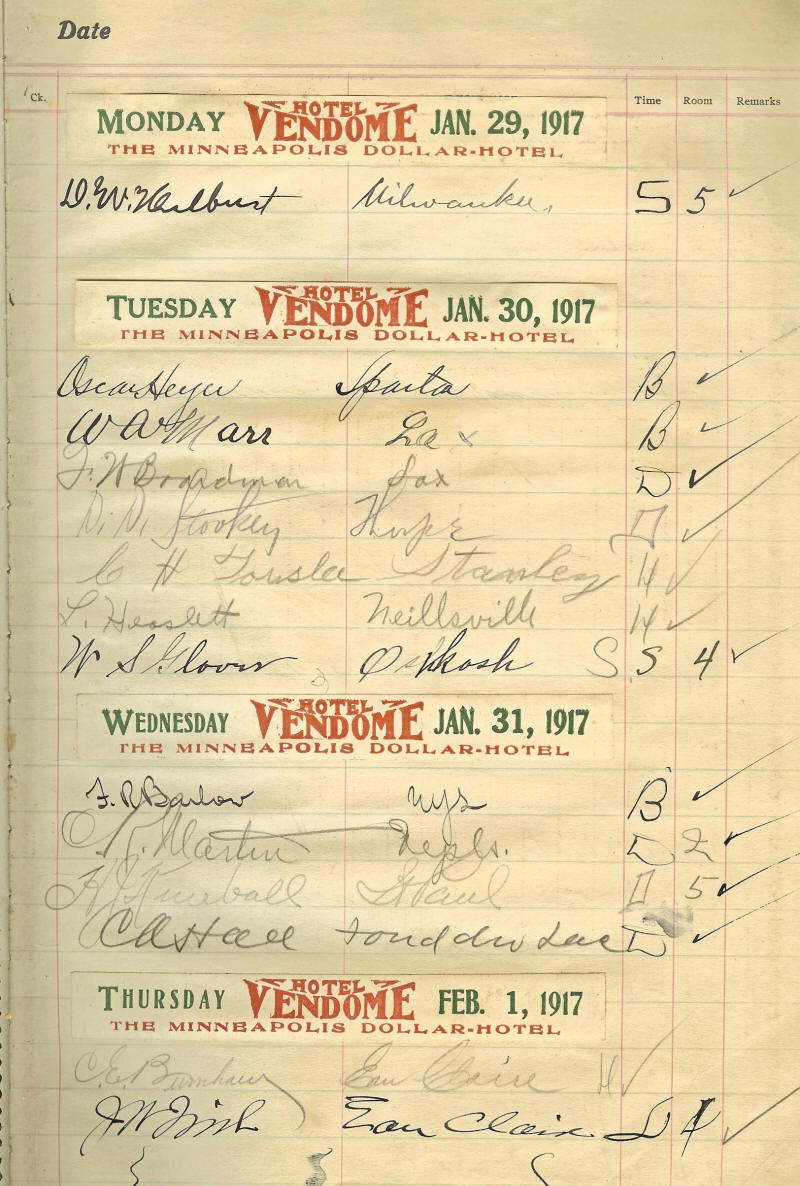 Date
Ck. Time Room Remarks
MONDAY HOTEL VENDOME JAN. 29, 1917
THE MINNEAPOLIS DOLLAR-HOTEL
D.W. Hulburt Milwaukee. S 5 ✓
TUESDAY HOTEL VENDOME JAN. 30, 1917
THE MINNEAPOLIS DOLLAR-HOTEL
Oscar Heyer Sparta B ✓
W W Marr La x B ✓
F. W Boardman Lax D ✓
Stookey Thorp ✓
C H Stanley H ✓
L. Heaslett Neillsville H ✓
W S Glover Oshkosh S. S 4 ✓
WEDNESDAY HOTEL VENDOME JAN. 31, 1917
THE MINNEAPOLIS DOLLAR-HOTEL
F. R Barlow B ✓
Martin Mpls. D 2 ✓
Kimball St Paul D 5 ✓
C A Hall Fond du Lac D ✓
THURSDAY HOTEL VENDOME FEB. 1, 1917
THE MINNEAPOLIS DOLLAR-HOTEL
C. E. Burnham Eau Claire H ✓
Eau Claire D 4 ✓